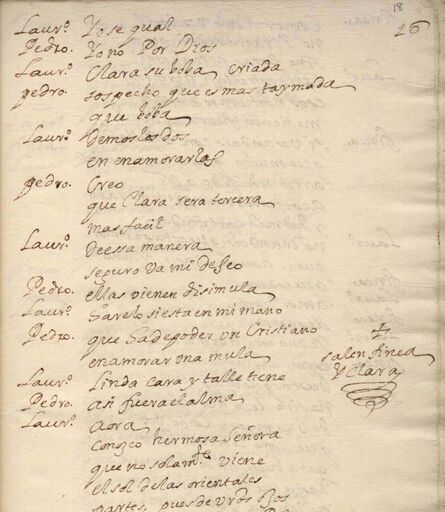 18
16
Laurº. Yo se qual
Pedro. Yo no Por Dios
Laurº. Clara su boba criada
pedro. sospecho que es mas taymada
que boba
Laurº. Demos los dos
en enamorarlas
pedro. Creo
que Clara sera tercera
mas facil
Laurº. De essa manera
seguro va mi deseo
Pedro. ellas vienen disimula
Laurº. Sarelo si esta en mi mano
Pedro. que Sa de poder vn Cristiano
enamorar vna mula
salen finea
y Clara
Laurº. Linda cara y talle tiene
Pedro. asi fuera el alma
Laurº. aora
conozco hermosa señora
que no solamte viene
el sol de las orientales
partes, pues de vros ojos